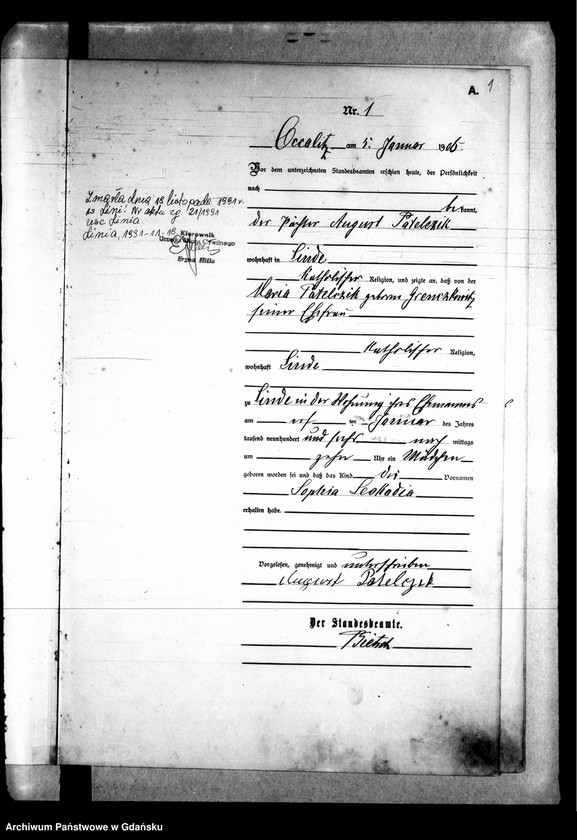 A. 1
Nr. 1
Occalitz am 5. Januar 1906
Vor dem unterzeichneten Standesbeamten erschien heute, der Persönlichkeit
nach
bekannt,
der Pächter August Patelczik
wohnhaft in Linde
katholischer Religion, und zeigte an, daß von der
Maria Patelczik geborene
seiner Ehefrau
katholischer Religion,
wohnhaft Linde
zu Linde in der Wohnung ihres Ehemannes
am Januar des Jahres
tausend neunhundert und sechs nach mittags
um zehn Uhr ein Mädchen
geboren worden sei und daß das Kind die Vornamen
Sophia Leokadia
erhalten habe.
Vorgelesen, genehmigt und unterschrieben
August Patelczik
Der Standesbeamte.
Zmarła dnia 18 listopada 1991 r.
w Lini. Nr aktu zg 21/1991
USC Linia.
Linia, 1991-11-18
Kierownik
Urzędu Stanu Cywilnego
Archiwum Państwowe w Gdańsku